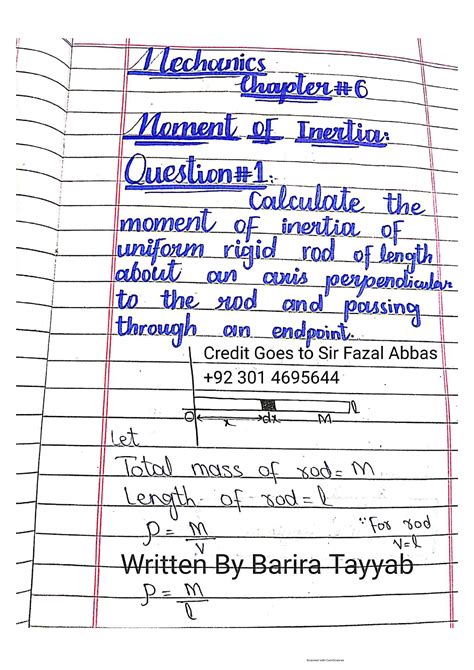 Mechanics
Chapter#6
Moment of Inertia:
Question#1:
Calculate the
moment of inertia of
uniform rigid rod of length
about an axis perpendicular
to the rod and passing
through an endpoint.
Credit Goes to Sir Fazal Abbas
+92 301 4695644
O x dx M l
Let
Total mass of rod = M
Length of rod = l
ρ = M/V ∵ For rod
V=l
Written By Barira Tayyab
ρ = M/l
Scanned with CamScanner